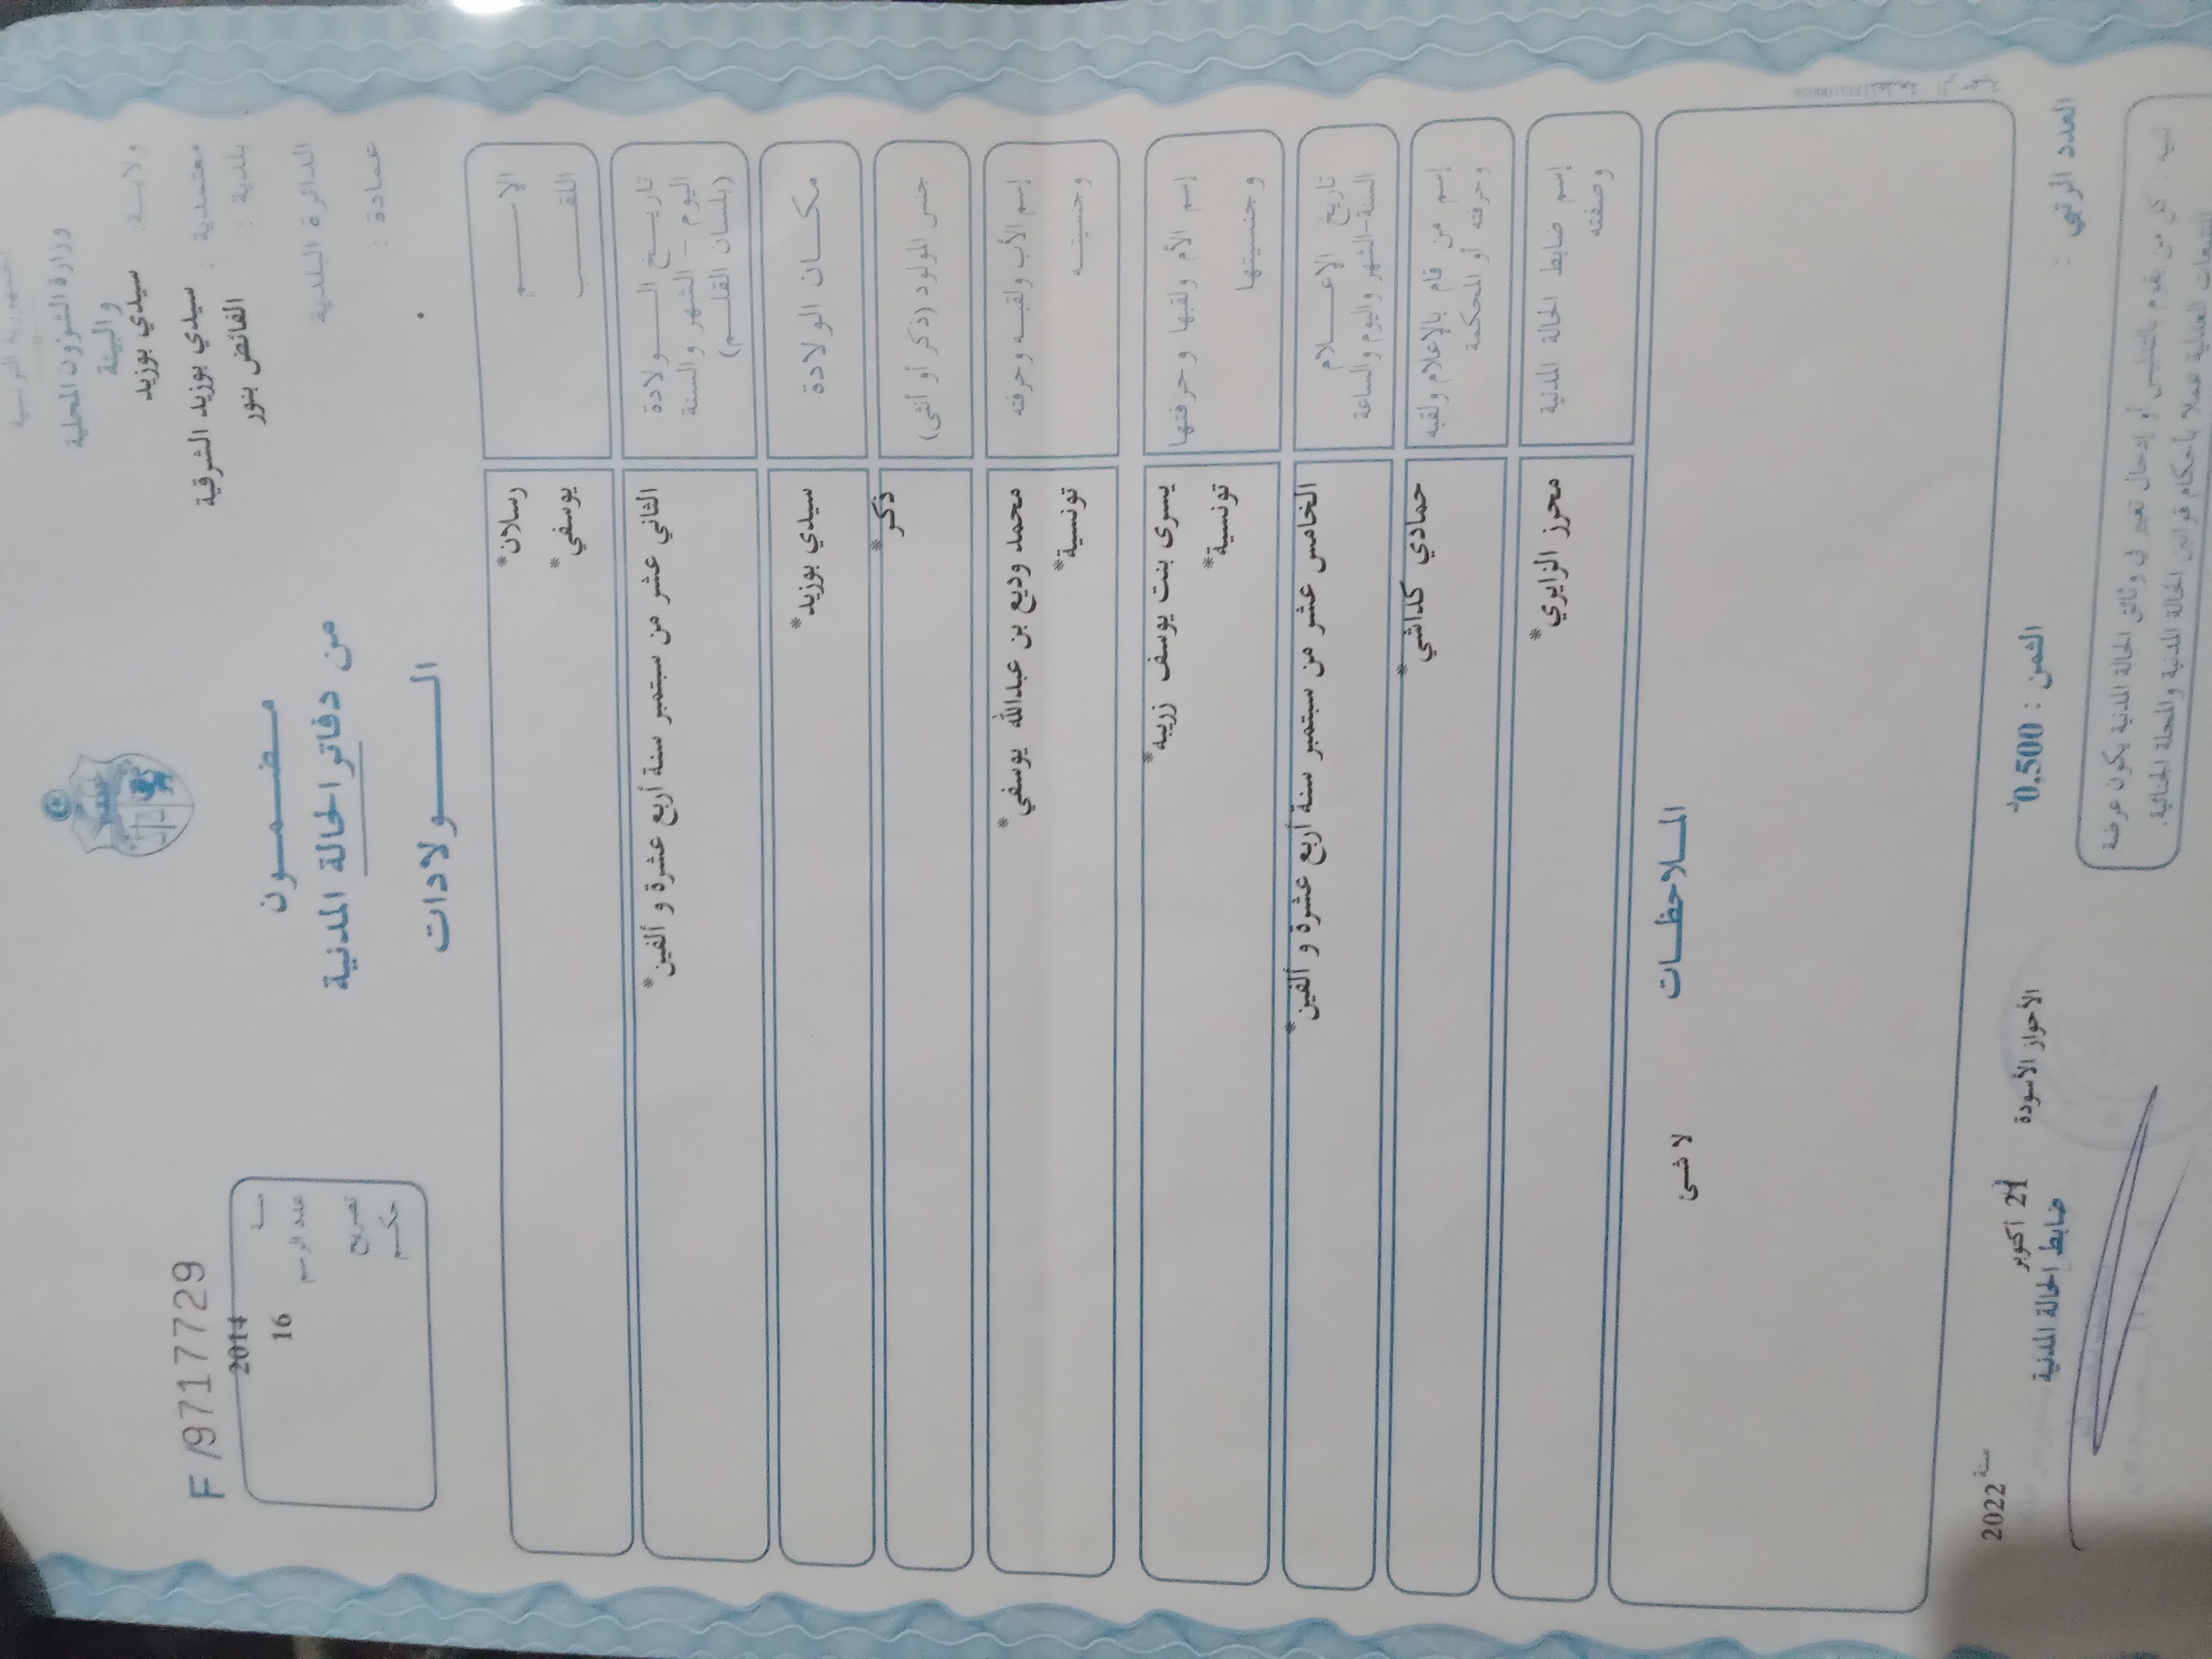 الجمهورية التونسية
وزارة الشؤون المحلية
والبيئة
ولايـة: سيدي بوزيد
معتمدية : سيدي بوزيد الشرقية
بلدية : الفائض بنور
الدائرة البلدية
عمادة :
مـضـمـــون
من دفاتر الحالة المدنية
الـــــولادات
F /9717729
2014
عدد الرسم 16
تصريح
حكـم
الإســـــم رسلان*
اللقـــــب يوسفي*
تاريـــخ الـــــولادة الثاني عشر من سبتمبر سنة أربع عشرة و ألفين*
اليوم - الشهر والسنة
(بلسان القلـــم)
مكـــان الولادة سيدي بوزيد*
جنس المولود (ذكر أو أنثى) ذكر*
إسم الأب ولقبـه وحرفته محمد وديع بن عبدالله يوسفي*
وجنسيتـــه تونسية*
إسم الأم ولقبها وحرفتها يسرى بنت يوسف زريبه*
وجنسيتها تونسية*
تاريخ الإعـــلام الخامس عشر من سبتمبر سنة أربع عشرة و ألفين*
السنة-الشهر واليوم والساعة
إسم من قام بالإعلام ولقبه حمادي كداشي*
وحرفته أو المحكمة
إسم ضابط الحالة المدنية محرز الزايري*
وصفته
المـلاحظـــات
لا شئ
الأحواز الأسودة 21 أكتوبر سنة 2022
ضابط الحالة المدنية
العدد الرتبي :
الثمن : 0,500د
تنبيه : كل من يقوم بالتدليس أو إدخال تغيير في وثائق الحالة المدنية يكون عرضة
للتتبعات العدلية عملا بأحكام قوانين الحالة المدنية والمجلة الجنائية.